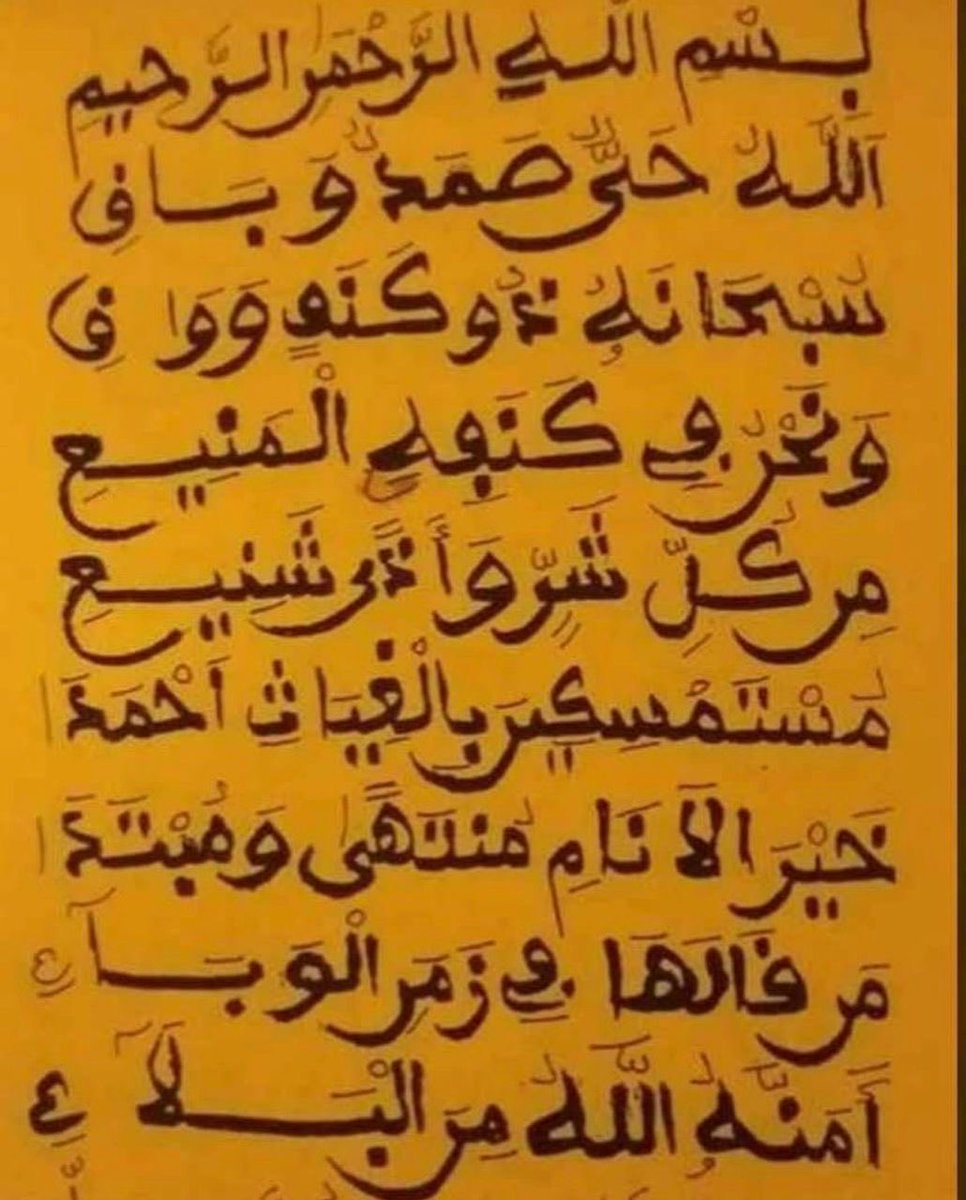 بِسْمِ اللَّهِ الرَّحْمَٰنِ الرَّحِيمِ
اَللَّهُ حَيٌّ صَمَدٌ وَبَاقِ
سُبْحَانَهُ ذُو كَنَفٍ وَوَاقِ
وَنَحْنُ فِي كَنَفِهِ الْمَنِيعِ
مِن كُلِّ شَرٍّ وَأَذًى شَنِيعِ
مُسْتَمْسِكِينَ بِالْغِيَاثِ أَحْمَدَا
خَيْرِ الَانَامِ مُنتَهًى وَمُبْتَدَا
مَن قَالَهَا فِي زَمَنِ الْوَبَآءِ
أَمَّنَهُ اللَّهُ مِنَ الْبَلَآءِ